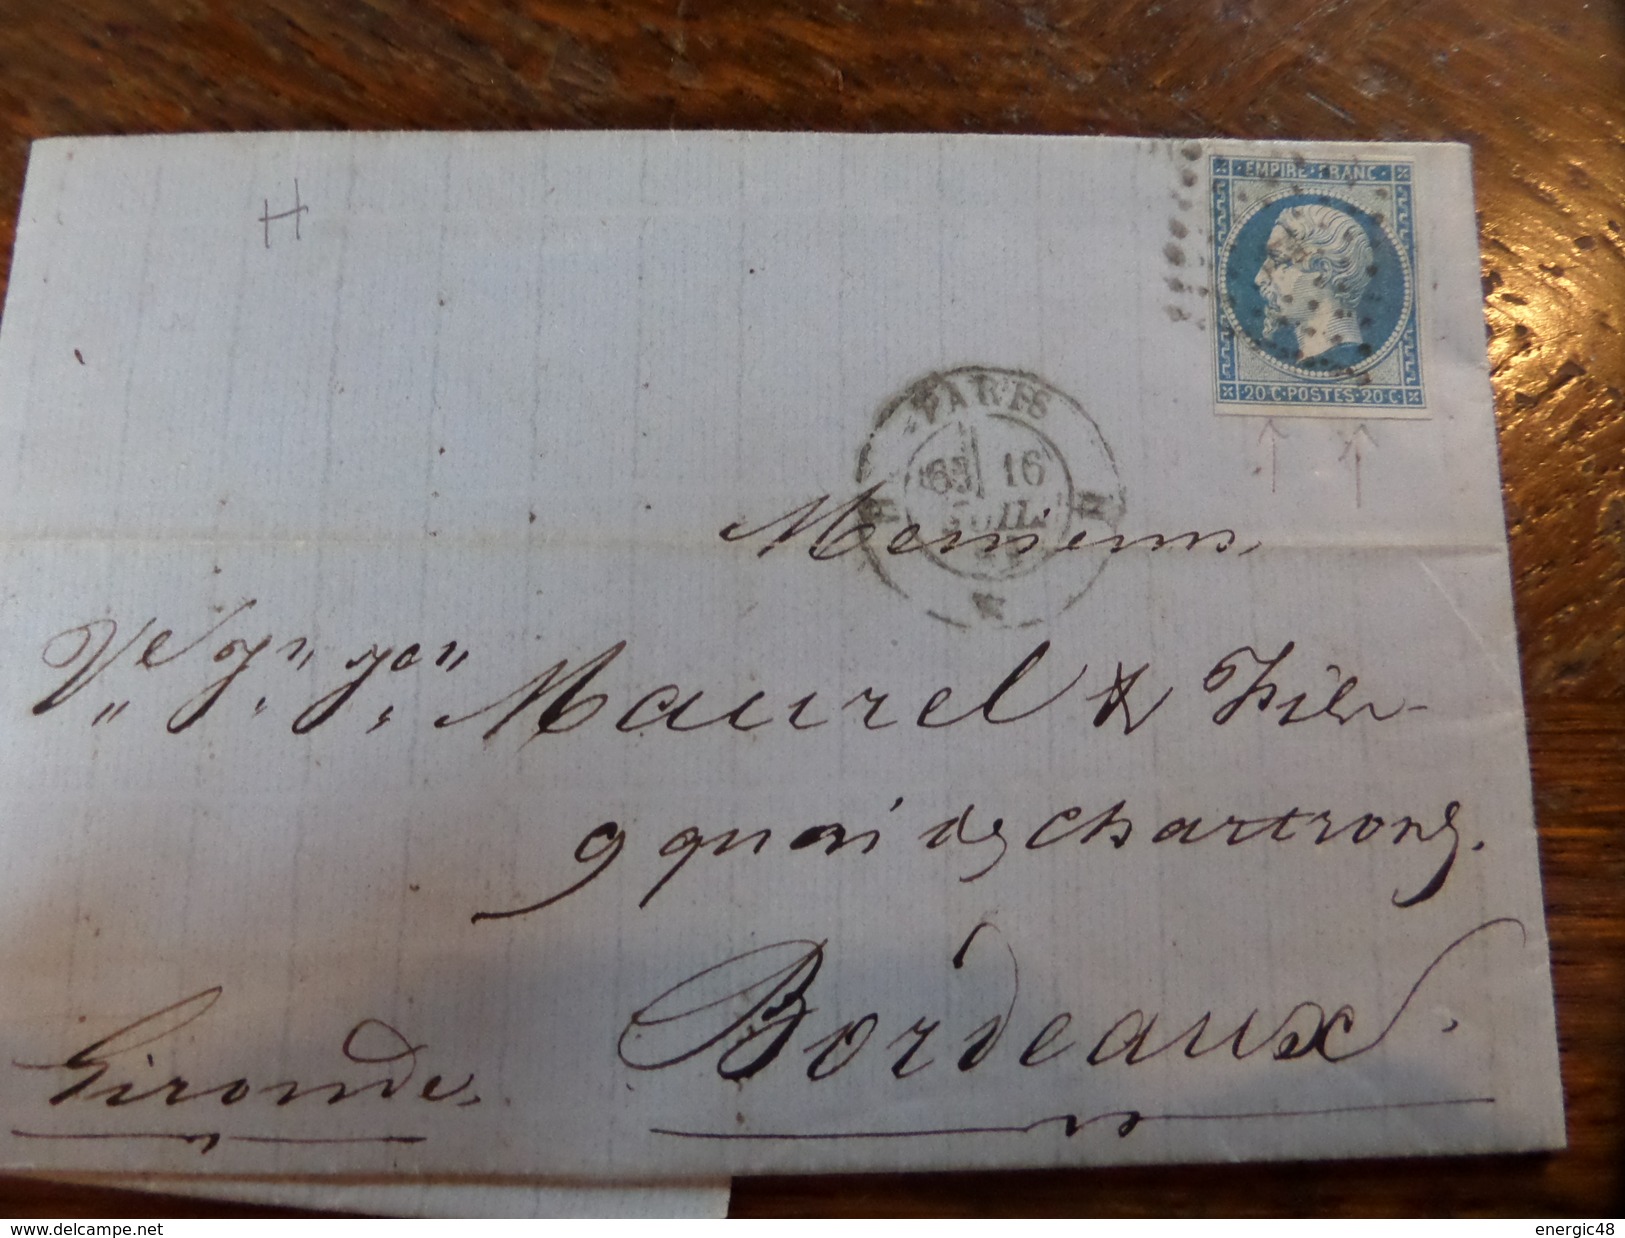 H
EMPIRE · FRANC ·
20 · C · POSTES · 20 · C
PARIS
16
JUIL
H
Messieurs
Ve Maurel & Fils
9 quai des Chartrons.
Bordeaux.
Gironde,
www.delcampe.net
energic48